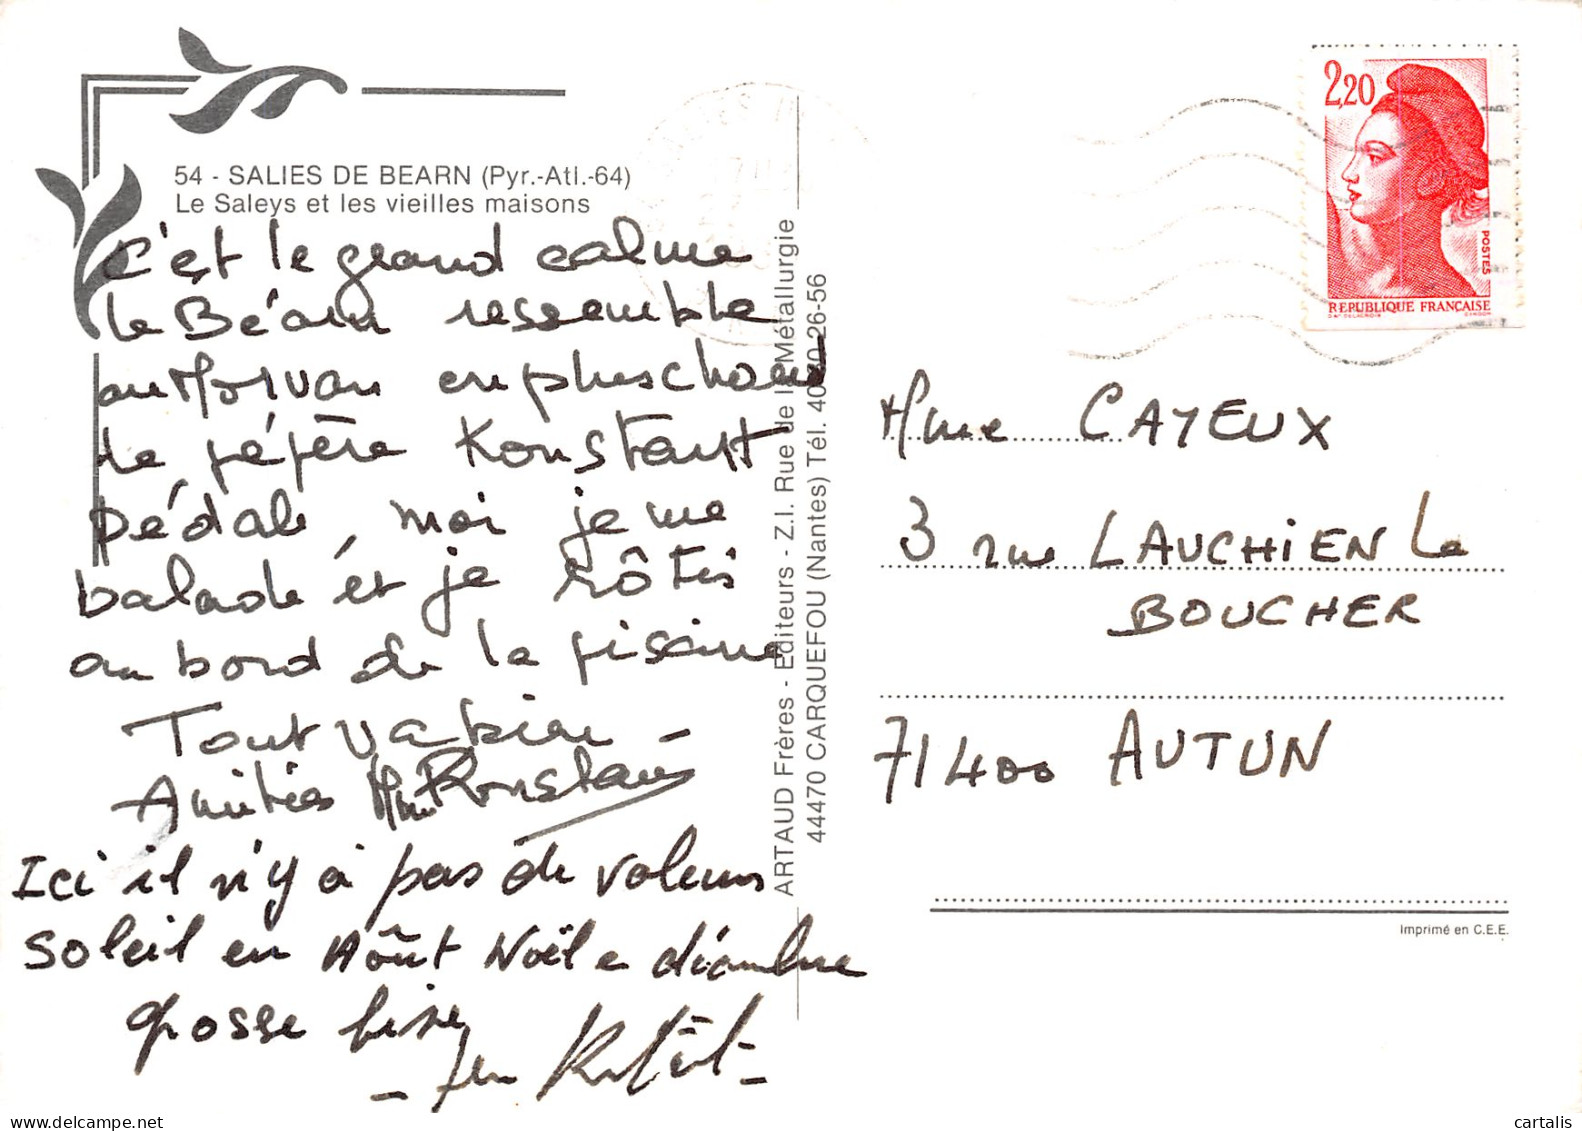 54 - SALIES DE BEARN (Pyr.-Atl.-64)
Le Saleys et les vieilles maisons
C'est le grand calme
le Béarn ressemble
au Morvan en plus chaud
le pépère Konstant
pédale, moi je me
balade et je rôtis
au bord de la piscine
Tout va bien -
Amitiés Mme Konstant
Ici il n'y a pas de voleurs
soleil en Août Noël e décembre
grosse bise
ARTAUD Frères - Editeurs - Z.I. Rue de la Métallurgie
44470 CARQUEFOU (Nantes) Tél. 40-30-26-56
2,20
POSTES
REPUBLIQUE FRANÇAISE
D'AP. DELACROIX GANDON
Mme CAYEUX
3 rue LAUCHIEN Le
BOUCHER
71400 AUTUN
Imprimé en C.E.E.
cartalis